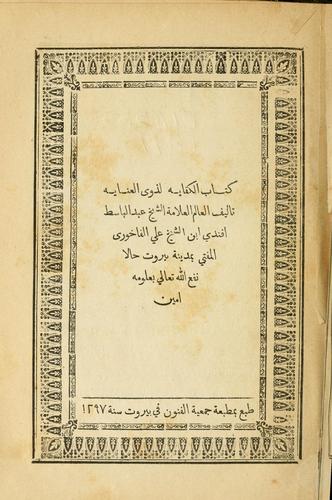 كتاب الكفايه لذوى العنايه
تاليف العالم العلامة الشيخ عبدالباسط
افندي ابن الشيخ علي الفاخورى
المفتي بمدينة بيروت حالا
نفع الله تعالي بعلومه
امين
طبع بمطبعة جمعية الفنون في بيروت سنة ١٢٩٧